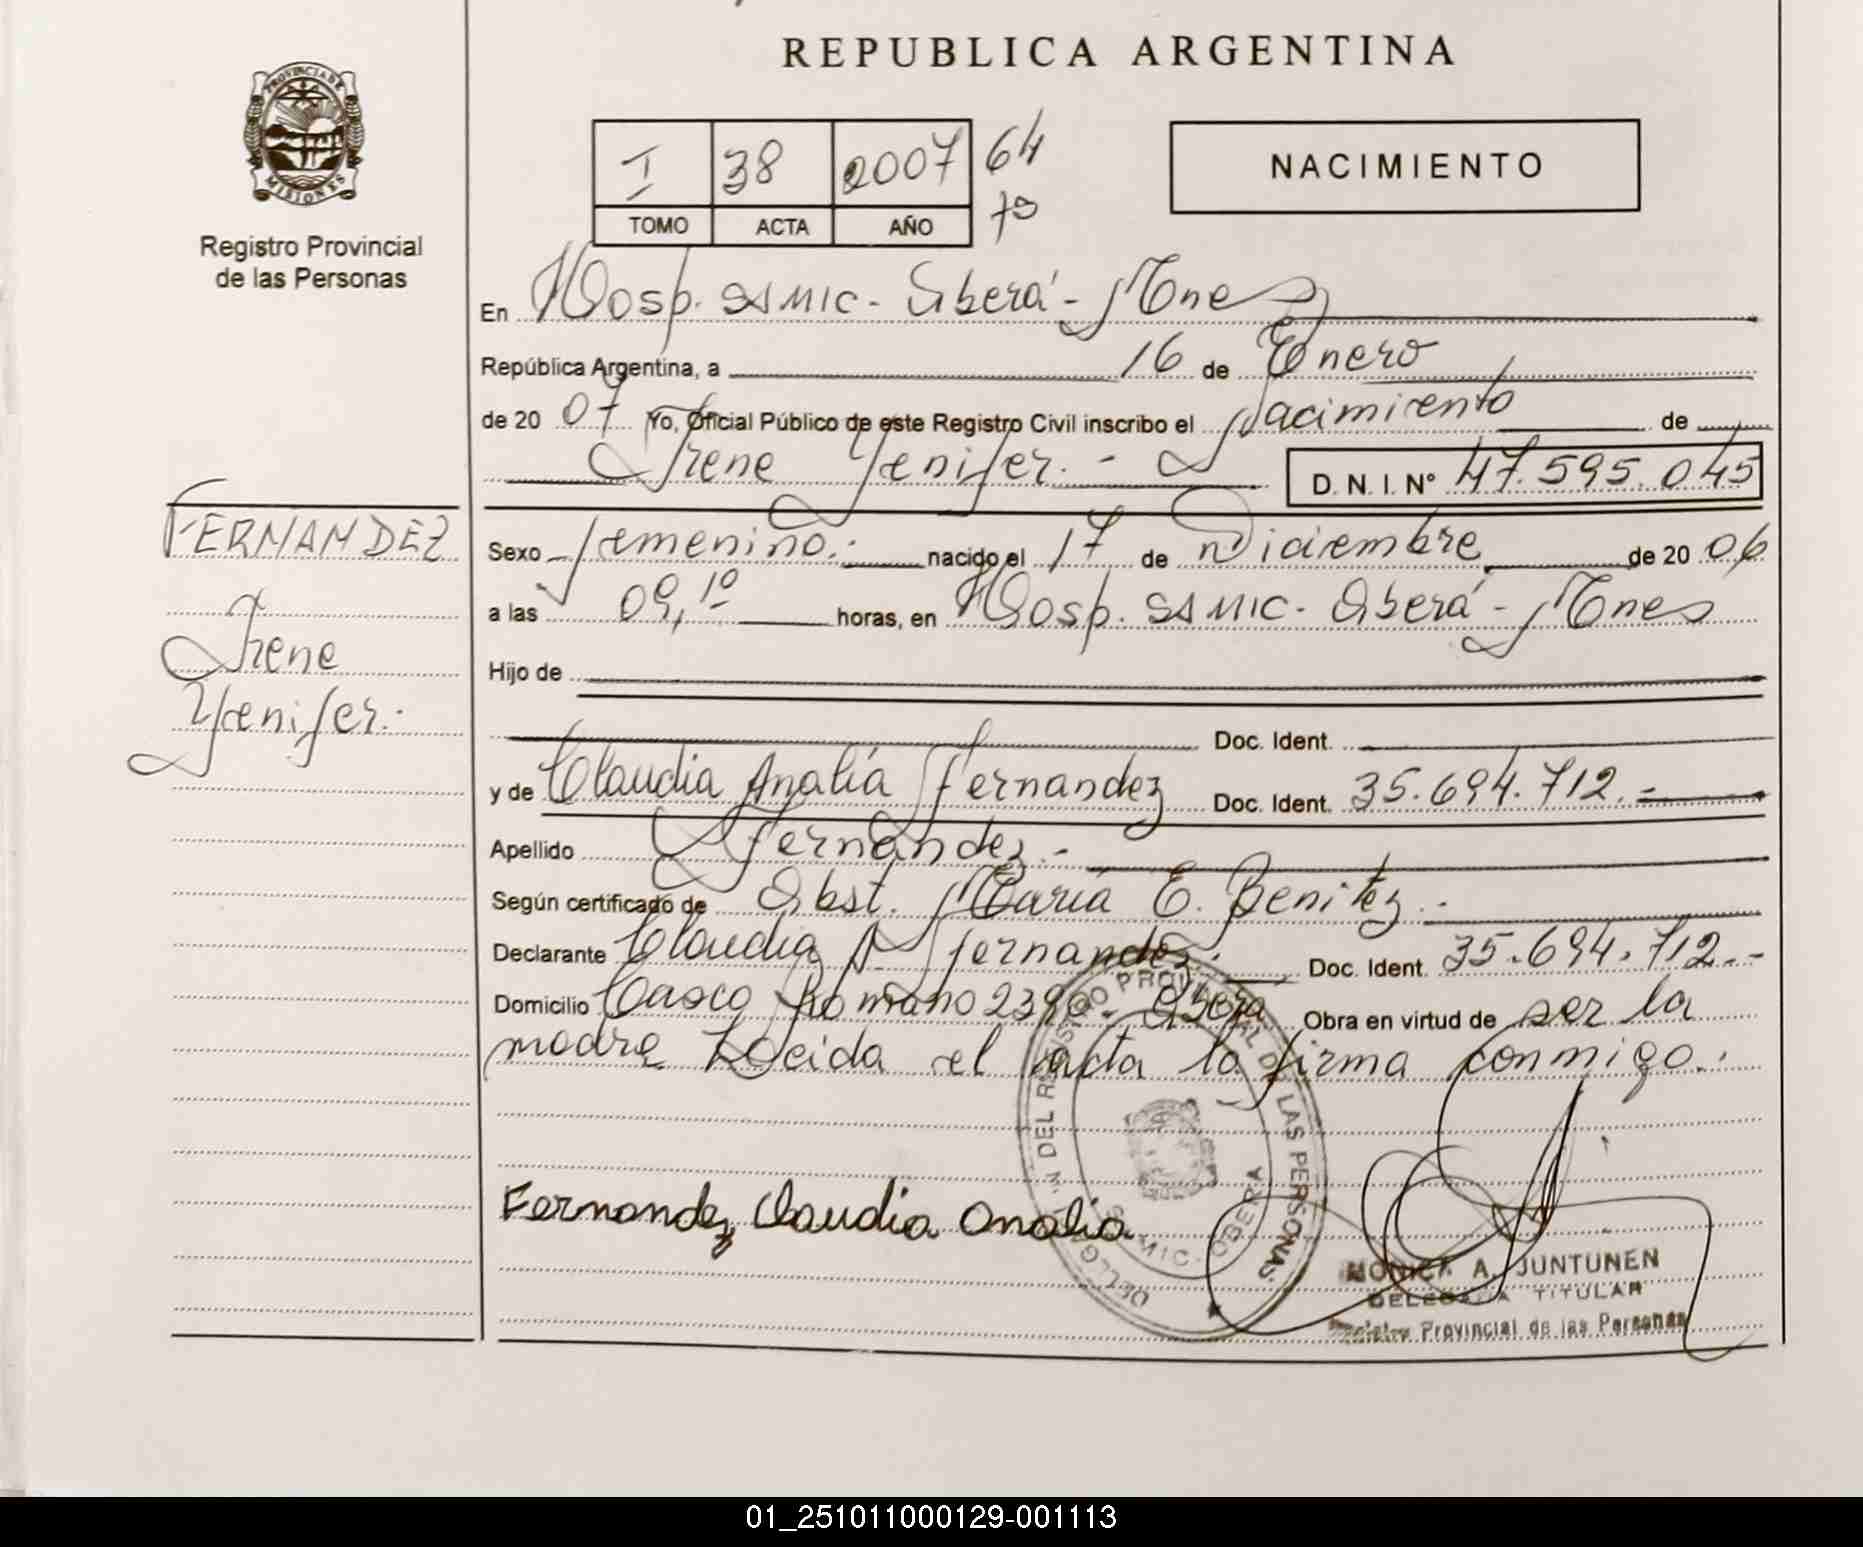 REPUBLICA ARGENTINA
PROVINCIA DE
MISIONES
Registro Provincial
de las Personas
I 38 2007 64
TOMO ACTA AÑO 79
NACIMIENTO
En Hosp. SAMIC - Oberá - Mnes
República Argentina, a 16 de Enero
de 20 07 Yo, Oficial Público de este Registro Civil inscribo el Nacimiento de
Irene Yenifer.- D. N. I. N° 47.595.045
FERNANDEZ
Irene
Yenifer.-
Sexo femenino.- nacido el 17 de Diciembre de 20 06
a las 09,10 horas, en Hosp. SAMIC - Oberá - Mnes
Hijo de
Doc. Ident.
y de Claudia Analía Fernandez Doc. Ident. 35.694.712.-
Apellido Fernandez.-
Según certificado de Obst. María E. Benitez.-
Declarante Claudia A. Fernandez. Doc. Ident. 35.694.712.-
Domicilio Casco Romano 2390 - Oberá Obra en virtud de ser la
madre Leída el acta la firma conmigo.-
Fernandez Claudia Analia
DELEGACION DEL REGISTRO PROVINCIAL DE LAS PERSONAS
SAMIC - OBERA
MONICA A. JUNTUNEN
DELEGADA TITULAR
Registro Provincial de las Personas
01_251011000129-001113